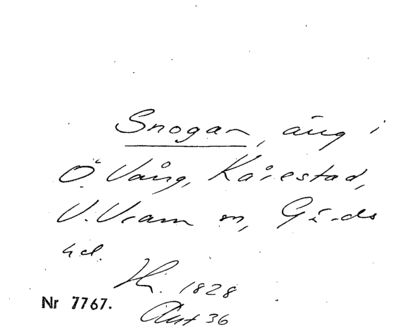 Snogan, äng i
Ö. Vång, Kårestad,
V. Vram sn, Gärds
hd.
Hk. 1828
Akt 36
Nr 7767.